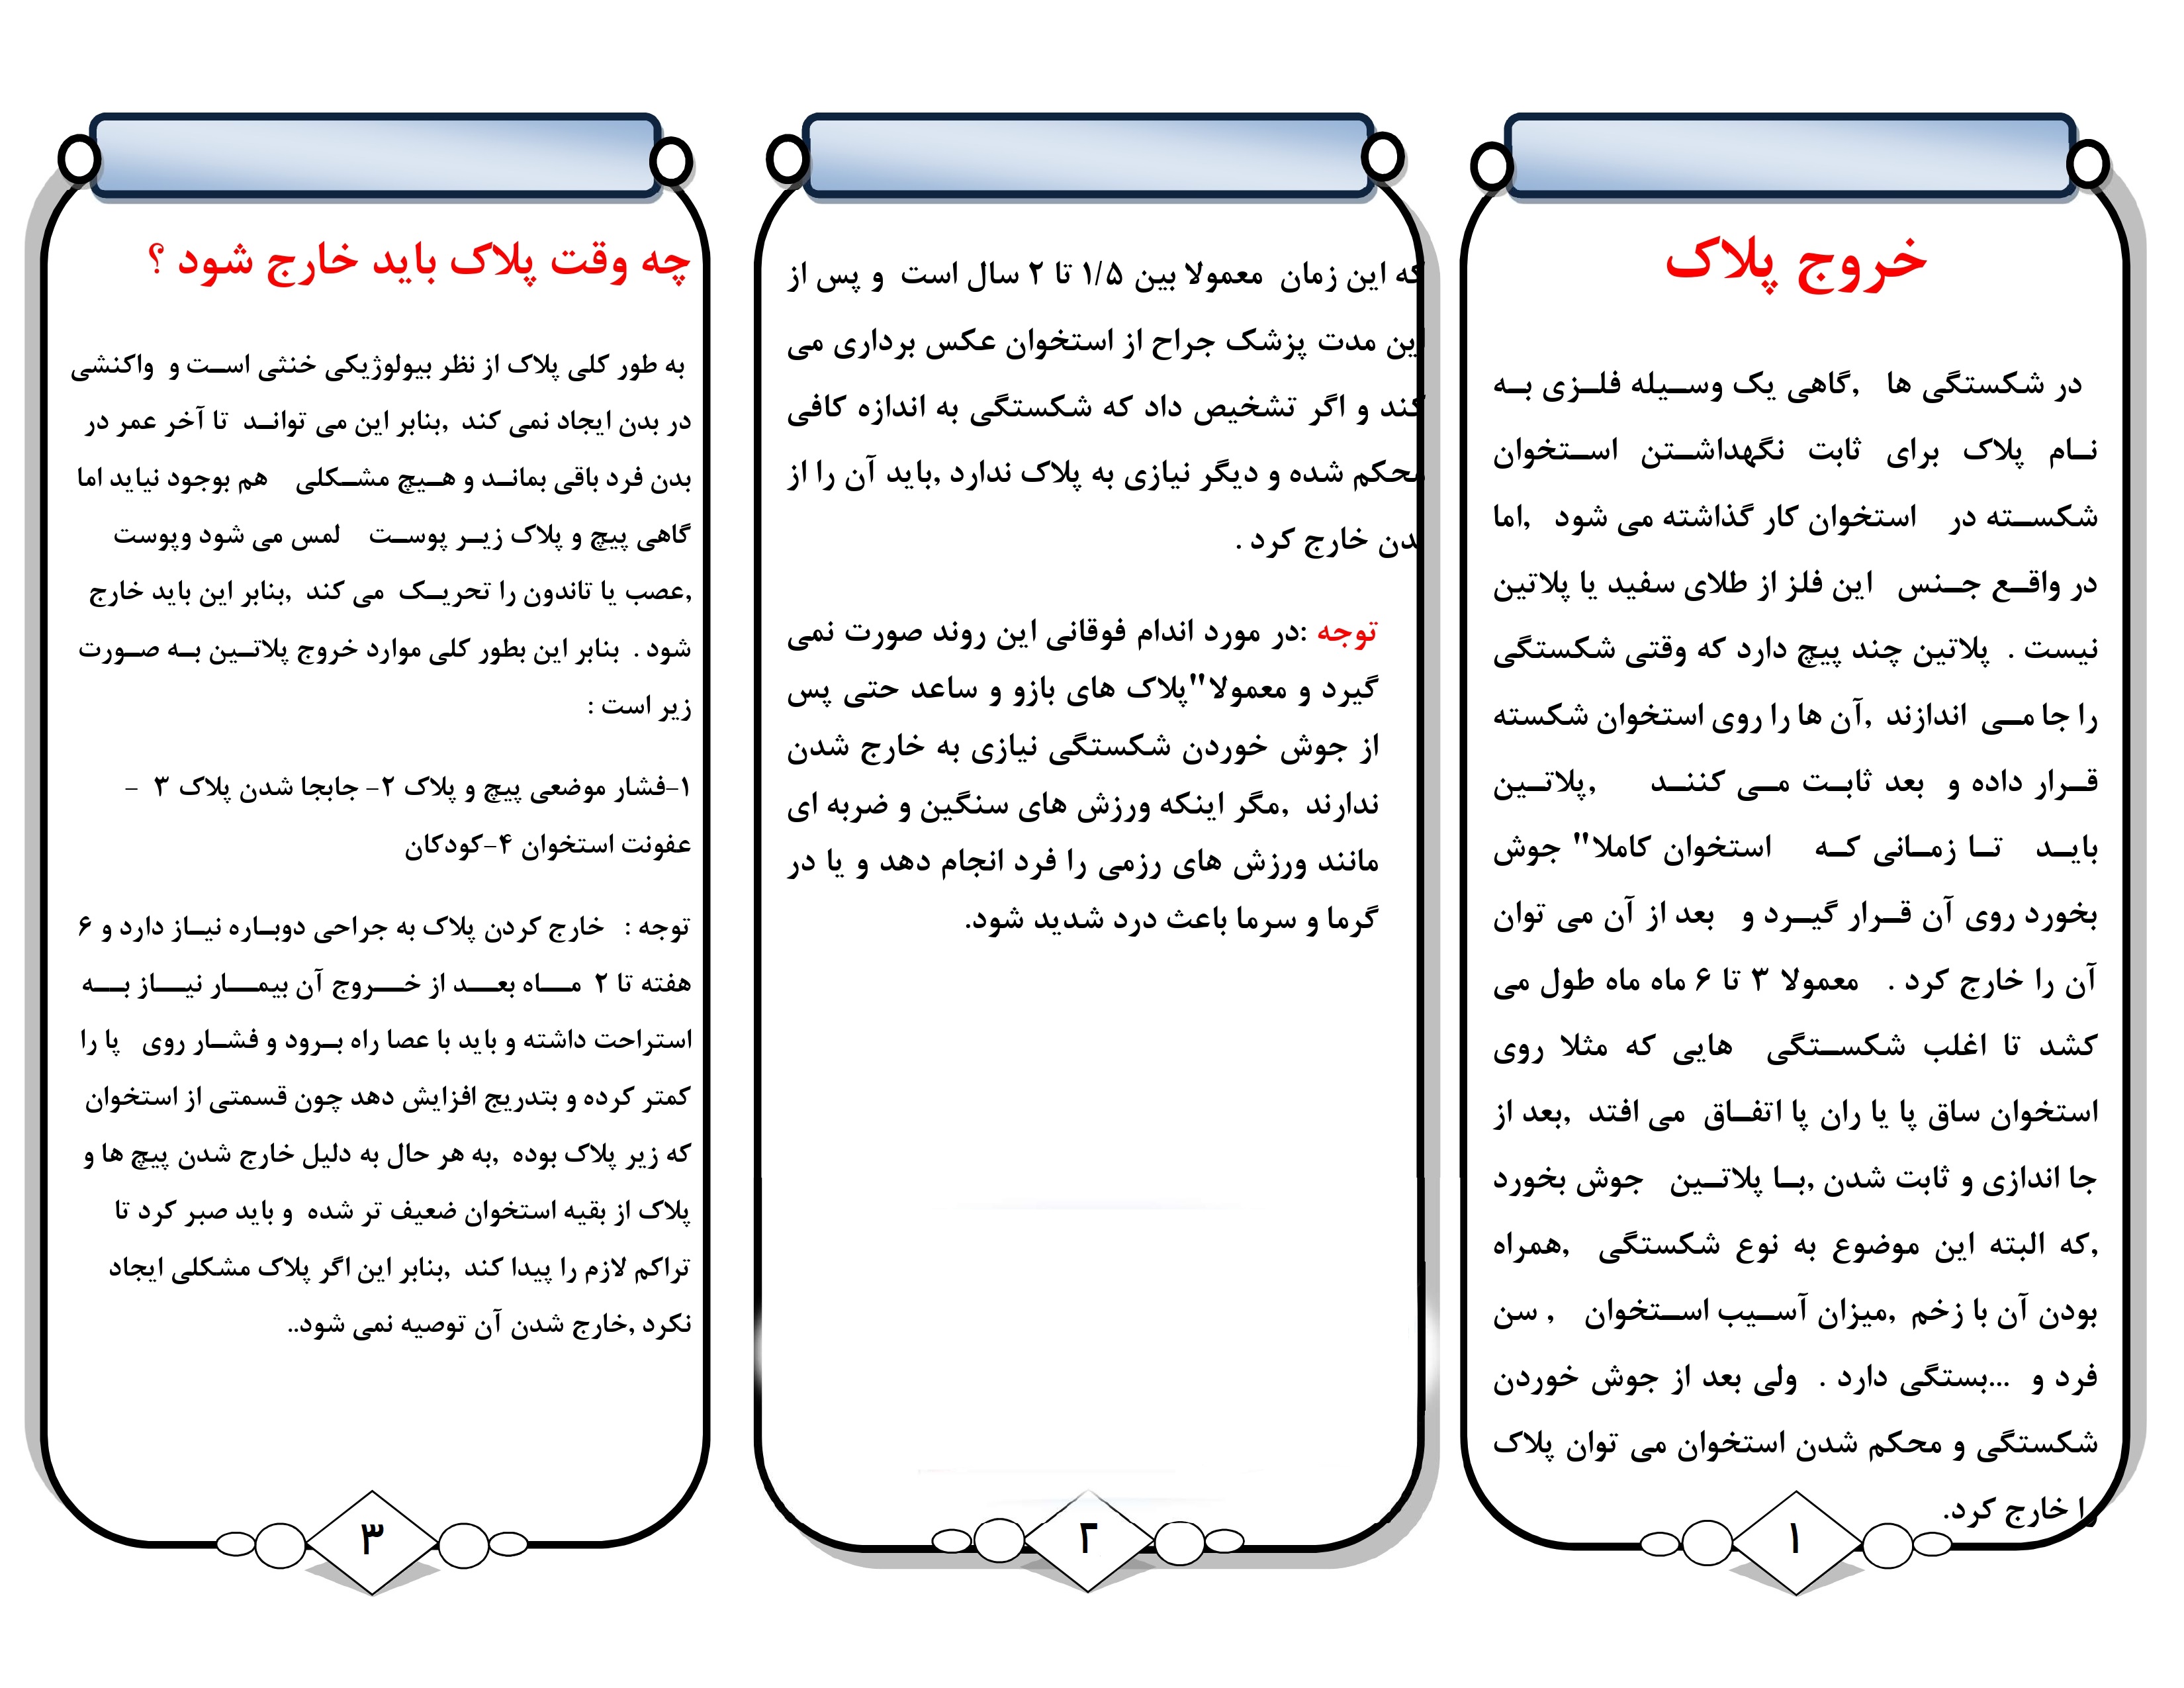 خروج پلاک
در شکستگی ها ,گاهی یک وسیله فلزی به
نام پلاک برای ثابت نگهداشتن استخوان
شکسته در استخوان کار گذاشته می شود ,اما
در واقع جنس این فلز از طلای سفید یا پلاتین
نیست . پلاتین چند پیچ دارد که وقتی شکستگی
را جا می اندازند ,آن ها را روی استخوان شکسته
قرار داده و بعد ثابت می کنند ,پلاتین
باید تا زمانی که استخوان کاملا" جوش
بخورد روی آن قرار گیرد و بعد از آن می توان
آن را خارج کرد . معمولا ۳ تا ۶ ماه ماه طول می
کشد تا اغلب شکستگی هایی که مثلا روی
استخوان ساق پا یا ران پا اتفاق می افتد ,بعد از
جا اندازی و ثابت شدن ,با پلاتین جوش بخورد
,که البته این موضوع به نوع شکستگی ,همراه
بودن آن با زخم ,میزان آسیب استخوان , سن
فرد و ...بستگی دارد . ولی بعد از جوش خوردن
شکستگی و محکم شدن استخوان می توان پلاک
را خارج کرد.
۱
که این زمان معمولا بین ۱/۵ تا ۲ سال است و پس از
این مدت پزشک جراح از استخوان عکس برداری می
کند و اگر تشخیص داد که شکستگی به اندازه کافی
محکم شده و دیگر نیازی به پلاک ندارد ,باید آن را از
بدن خارج کرد .
توجه :در مورد اندام فوقانی این روند صورت نمی
گیرد و معمولا"پلاک های بازو و ساعد حتی پس
از جوش خوردن شکستگی نیازی به خارج شدن
ندارند ,مگر اینکه ورزش های سنگین و ضربه ای
مانند ورزش های رزمی را فرد انجام دهد و یا در
گرما و سرما باعث درد شدید شود.
۲
چه وقت پلاک باید خارج شود ؟
به طور کلی پلاک از نظر بیولوژیکی خنثی است و واکنشی
در بدن ایجاد نمی کند ,بنابر این می تواند تا آخر عمر در
بدن فرد باقی بماند و هیچ مشکلی هم بوجود نیاید اما
گاهی پیچ و پلاک زیر پوست لمس می شود وپوست
,عصب یا تاندون را تحریک می کند ,بنابر این باید خارج
شود . بنابر این بطور کلی موارد خروج پلاتین به صورت
زیر است :
۱-فشار موضعی پیچ و پلاک ۲- جابجا شدن پلاک ۳ -
عفونت استخوان ۴-کودکان
توجه : خارج کردن پلاک به جراحی دوباره نیاز دارد و ۶
هفته تا ۲ ماه بعد از خروج آن بیمار نیاز به
استراحت داشته و باید با عصا راه برود و فشار روی پا را
کمتر کرده و بتدریج افزایش دهد چون قسمتی از استخوان
که زیر پلاک بوده ,به هر حال به دلیل خارج شدن پیچ ها و
پلاک از بقیه استخوان ضعیف تر شده و باید صبر کرد تا
تراکم لازم را پیدا کند ,بنابر این اگر پلاک مشکلی ایجاد
نکرد ,خارج شدن آن توصیه نمی شود..
۳